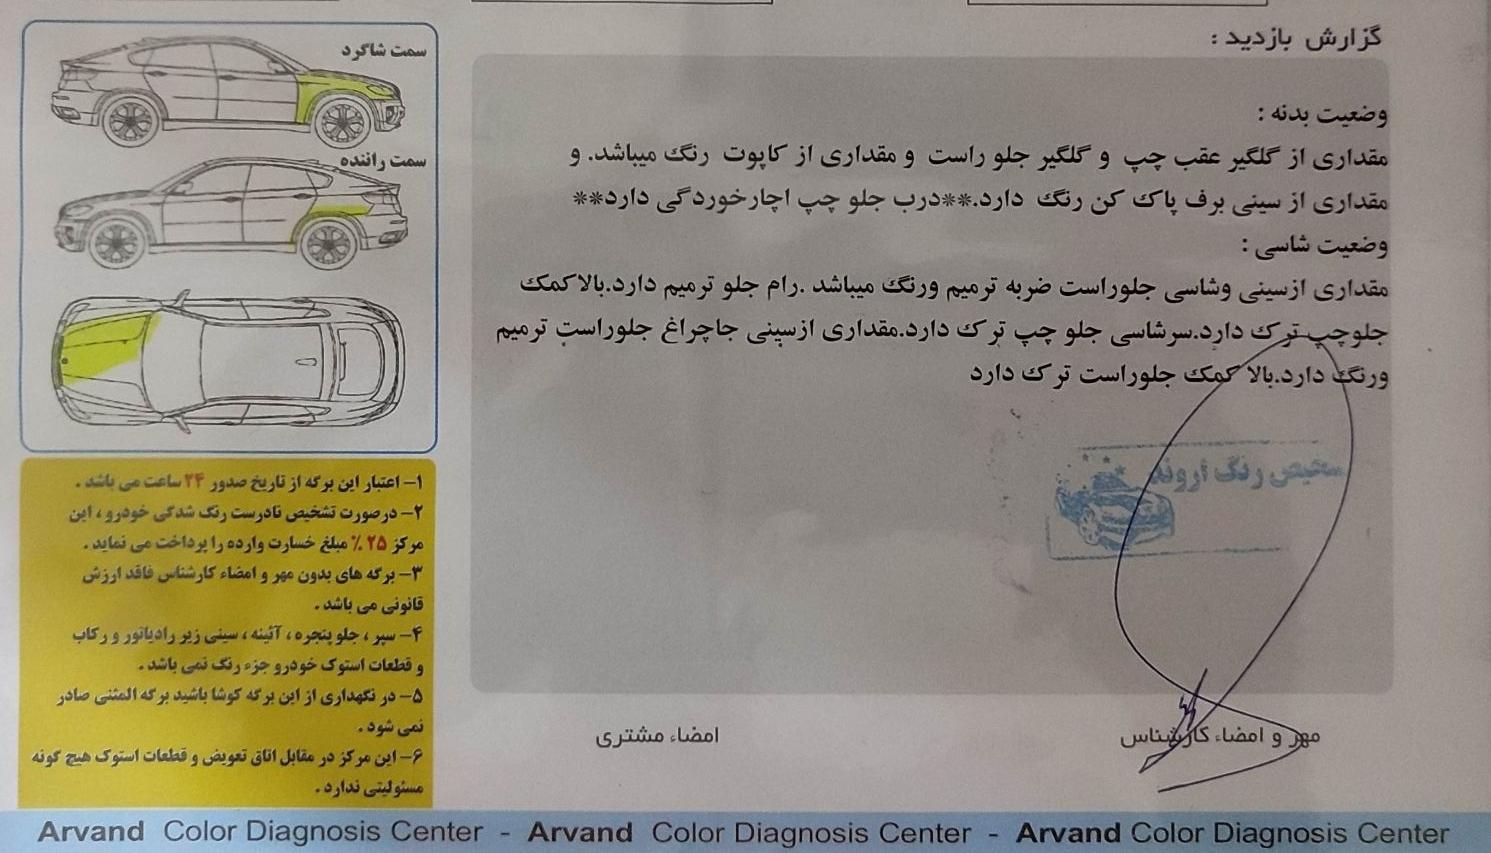 گزارش بازدید :
وضعیت بدنه :
مقداری از گلگیر عقب چپ و گلگیر جلو راست و مقداری از کاپوت رنگ میباشد. و
مقداری از سینی برف پاک کن رنگ دارد.**درب جلو چپ اچارخوردگی دارد**
وضعیت شاسی :
مقداری ازسینی وشاسی جلوراست ضربه ترمیم ورنگ میباشد .رام جلو ترمیم دارد.بالاکمک
جلوچپ ترک دارد.سرشاسی جلو چپ ترک دارد.مقداری ازسینی جاچراغ جلوراست ترمیم
ورنگ دارد.بالا کمک جلوراست ترک دارد
تشخیص رنگ اروند
مهر و امضاء کارشناس
امضاء مشتری
سمت شاگرد
سمت راننده
۱- اعتبار این برگه از تاریخ صدور ۲۴ ساعت می باشد .
۲- درصورت تشخیص نادرست رنگ شدگی خودرو ، این
مرکز ۲۵ ٪ مبلغ خسارت وارده را پرداخت می نماید .
۳- برگه های بدون مهر و امضاء کارشناس فاقد ارزش
قانونی می باشد .
۴- سپر ، جلو پنجره ، آئینه ، سینی زیر رادیاتور و رکاب
و قطعات استوک خودرو جزء رنگ نمی باشد .
۵- در نگهداری از این برگه کوشا باشید برگه المثنی صادر
نمی شود .
۶- این مرکز در مقابل اتاق تعویض و قطعات استوک هیچ گونه
مسئولیتی ندارد .
Arvand Color Diagnosis Center - Arvand Color Diagnosis Center - Arvand Color Diagnosis Center